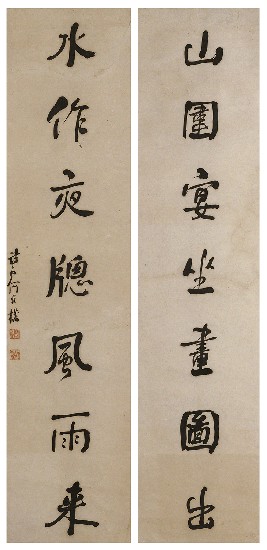 山圍宴坐畫圖出
水作夜牕風雨来